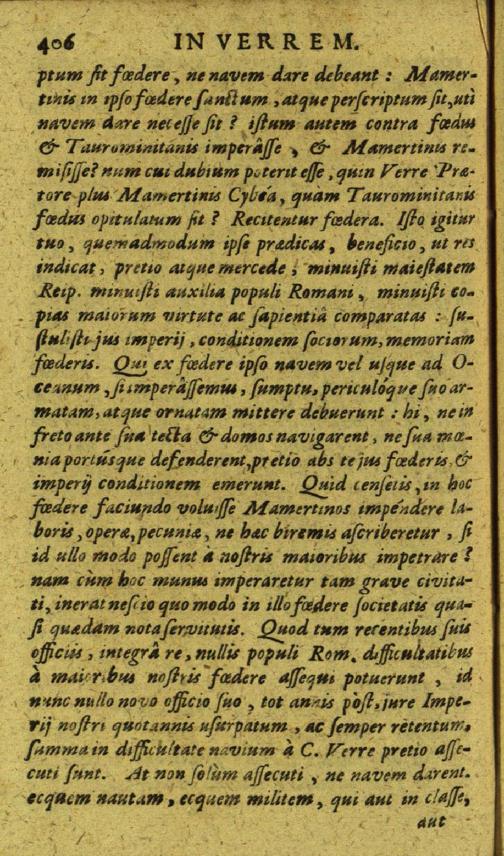 406 IN VERREM.
ptum sit fœdere, ne navem dare debeant : Mamer-
tinis in ipso fœdere sanctum, atque perscriptum sit, uti
navem dare necesse sit ? istum autem contra fœdus
& Taurominitanis imperâsse, & Mamertinis re-
misisse? num cui dubium poterit esse, quin Verre Præ-
tore plus Mamertinis Cybéa, quàm Taurominitanis
fœdus opitulatum sit ? Recitentur fœdera. Isto igitur
tuo, quemadmodum ipse prædicas, beneficio, ut res
indicat, pretio atque mercede, minuisti maiestatem
Reip. minuisti auxilia populi Romani, minuisti co-
pias maiorum virtute ac sapientiâ comparatas : su-
stulisti jus imperij, conditionem sociorum, memoriam
fœderis. Qui ex fœdere ipso navem vel usque ad O-
ceanum, si imperâssemus, sumptu, periculóque suo ar-
matam, atque ornatam mittere debuerunt : hi, ne in
freto ante sua tecta & domos navigarent, ne sua mœ-
nia portúsque defenderent, pretio abs te jus fœderis, &
imperij conditionem emerunt. Quid censetis, in hoc
fœdere faciundo voluisse Mamertinos impendere la-
boris, operæ, pecuniæ, ne hæc biremis ascriberetur, si
id ullo modo possent à nostris maioribus impetrare ?
nam cùm hoc munus imperaretur tam grave civita-
ti, inerat nescio quo modo in illo fœdere societatis qua-
si quædam nota servitutis. Quod tum recentibus suis
officiis, integrâ re, nullis populi Rom. difficultatibus
à maioribus nostris fœdere assequi potuerunt, id
nunc nullo novo officio suo, tot annis pòst, jure Impe-
rij nostri quotannis usurpatum, ac semper retentum,
summa in difficultate navium à C. Verre pretio asse-
cuti sunt. At non solùm assecuti, ne navem darent.
ecquem nautam, ecquem militem, qui aut in classe,
aut